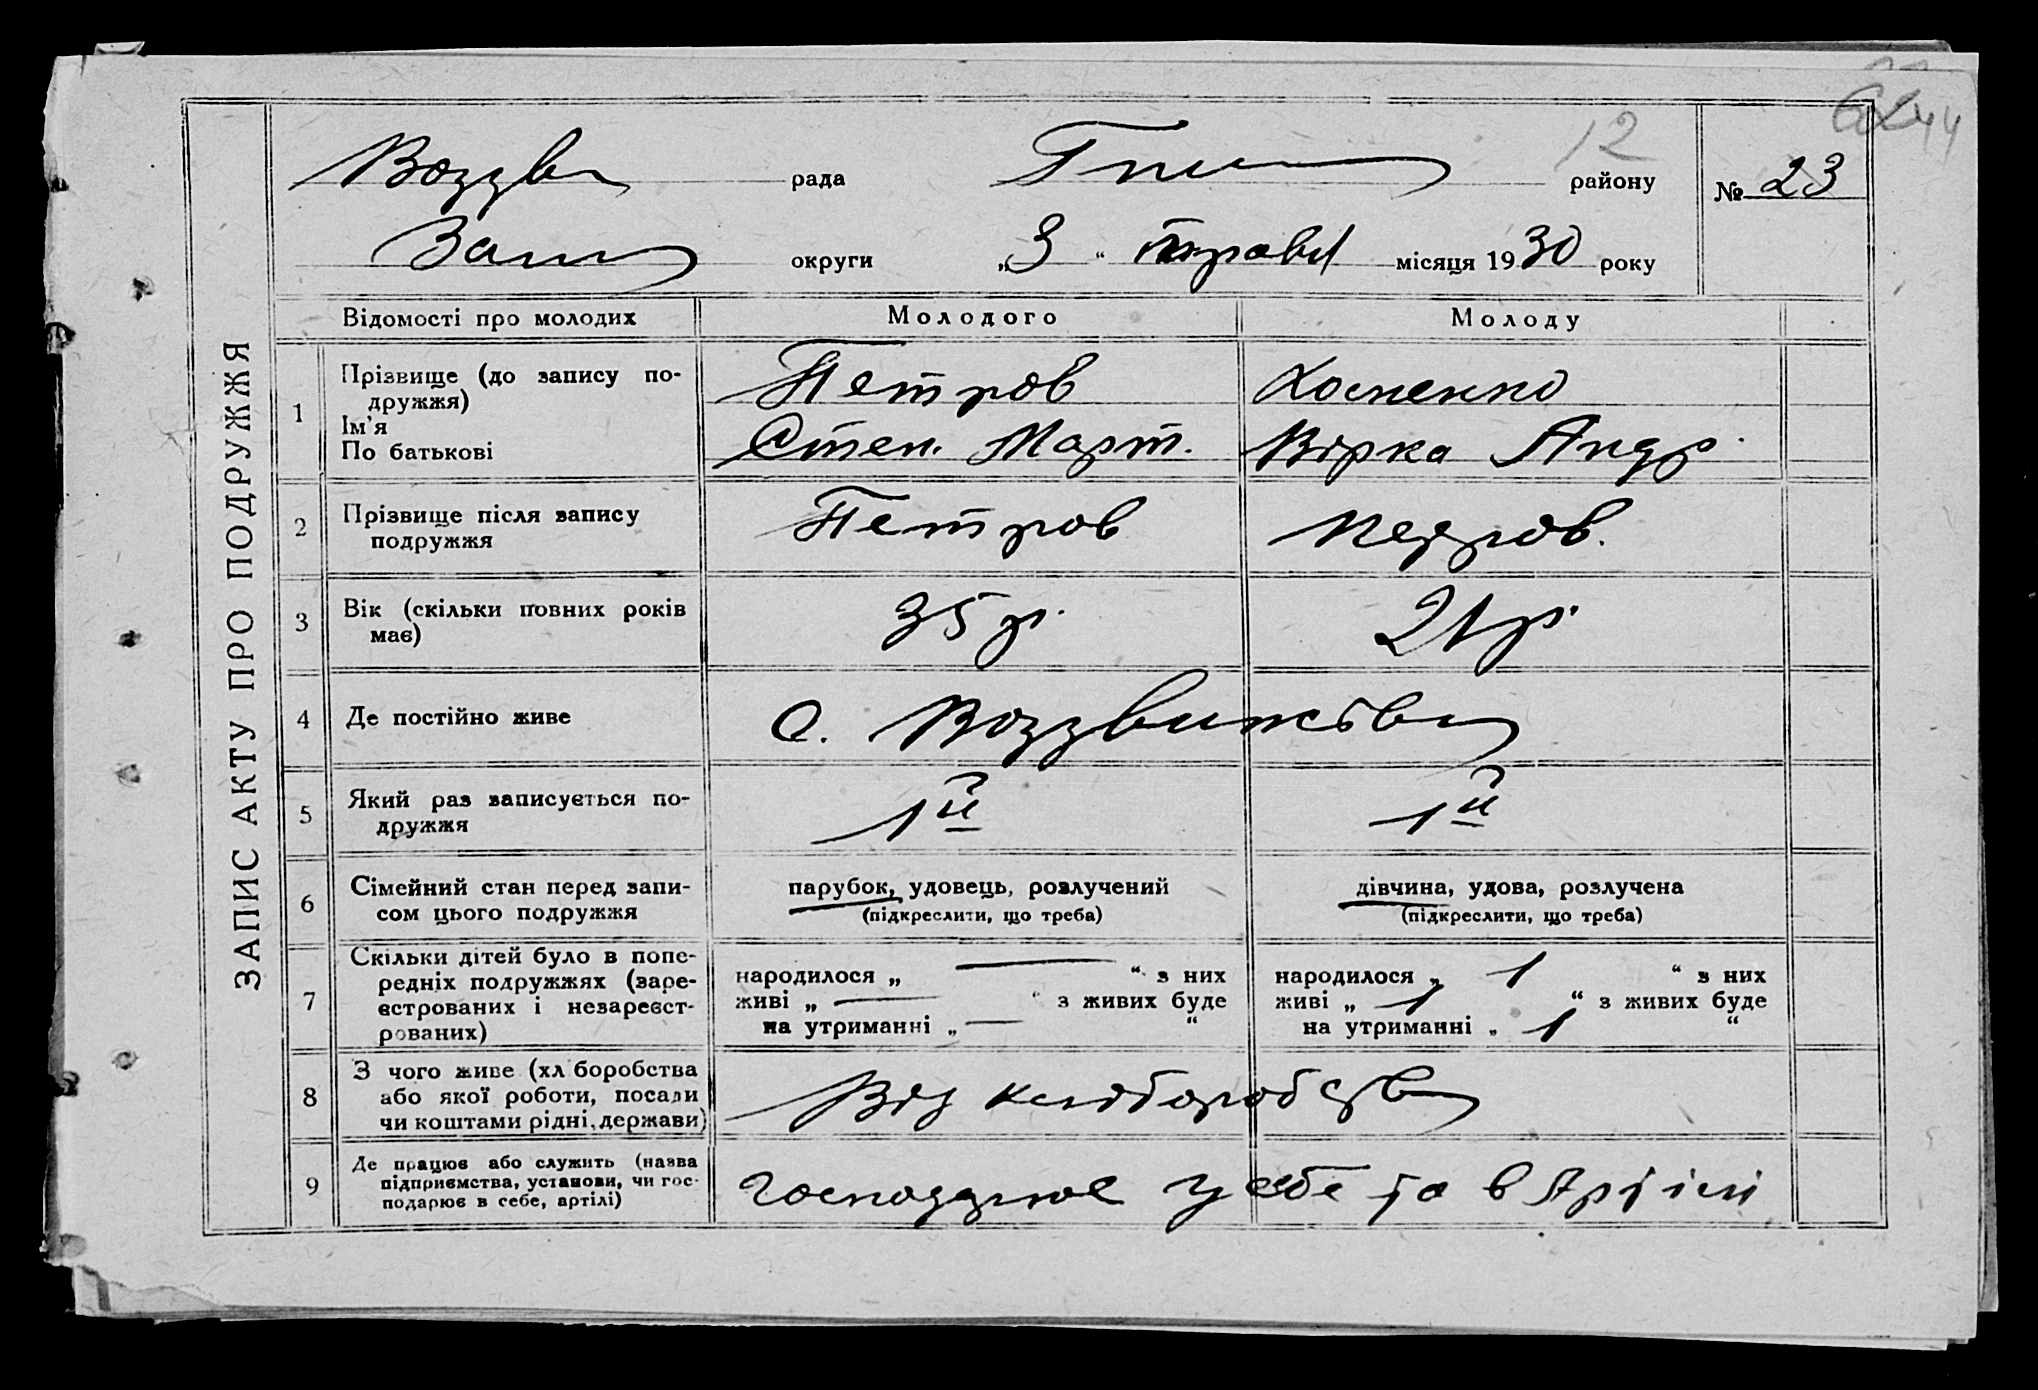 ЗАПИС АКТУ ПРО ПОДРУЖЖЯ
12
44
Воздв рада
району
№ 23
Зап округи „3“ травня місяця 1930 року
Відомості про молодих Молодого Молоду
1 Прізвище (до запису по-
дружжя)
Ім'я
По батькові
Петров
Степ. Март.
Вірка Андр.
2 Прізвище після запису
подружжя
Петров
Петров.
3 Вік (скільки повних років
має)
35 р.
21 р.
4 Де постійно живе
с. Воздвижівка
5 Який раз записується по-
дружжя
1й
1й
6 Сімейний стан перед запи-
сом цього подружжя
парубок, удовець, розлучений
(підкреслити, що треба)
дівчина, удова, розлучена
(підкреслити, що треба)
7 Скільки дітей було в попе-
редніх подружжях (заре-
єстрованих і незареєст-
рованих)
народилося „ — “ з них
живі „ — “ з живих буде
на утриманні „ — “
народилося „ 1 “ з них
живі „ 1 “ з живих буде
на утриманні „ 1 “
8 З чого живе (хліборобства
або якої роботи, посади
чи коштами рідні, держави)
Від хліборобства
9 Де працює або служить (назва
підприємства, установи, чи гос-
подарює в себе, артілі)
Господарює у себе та в Артілі